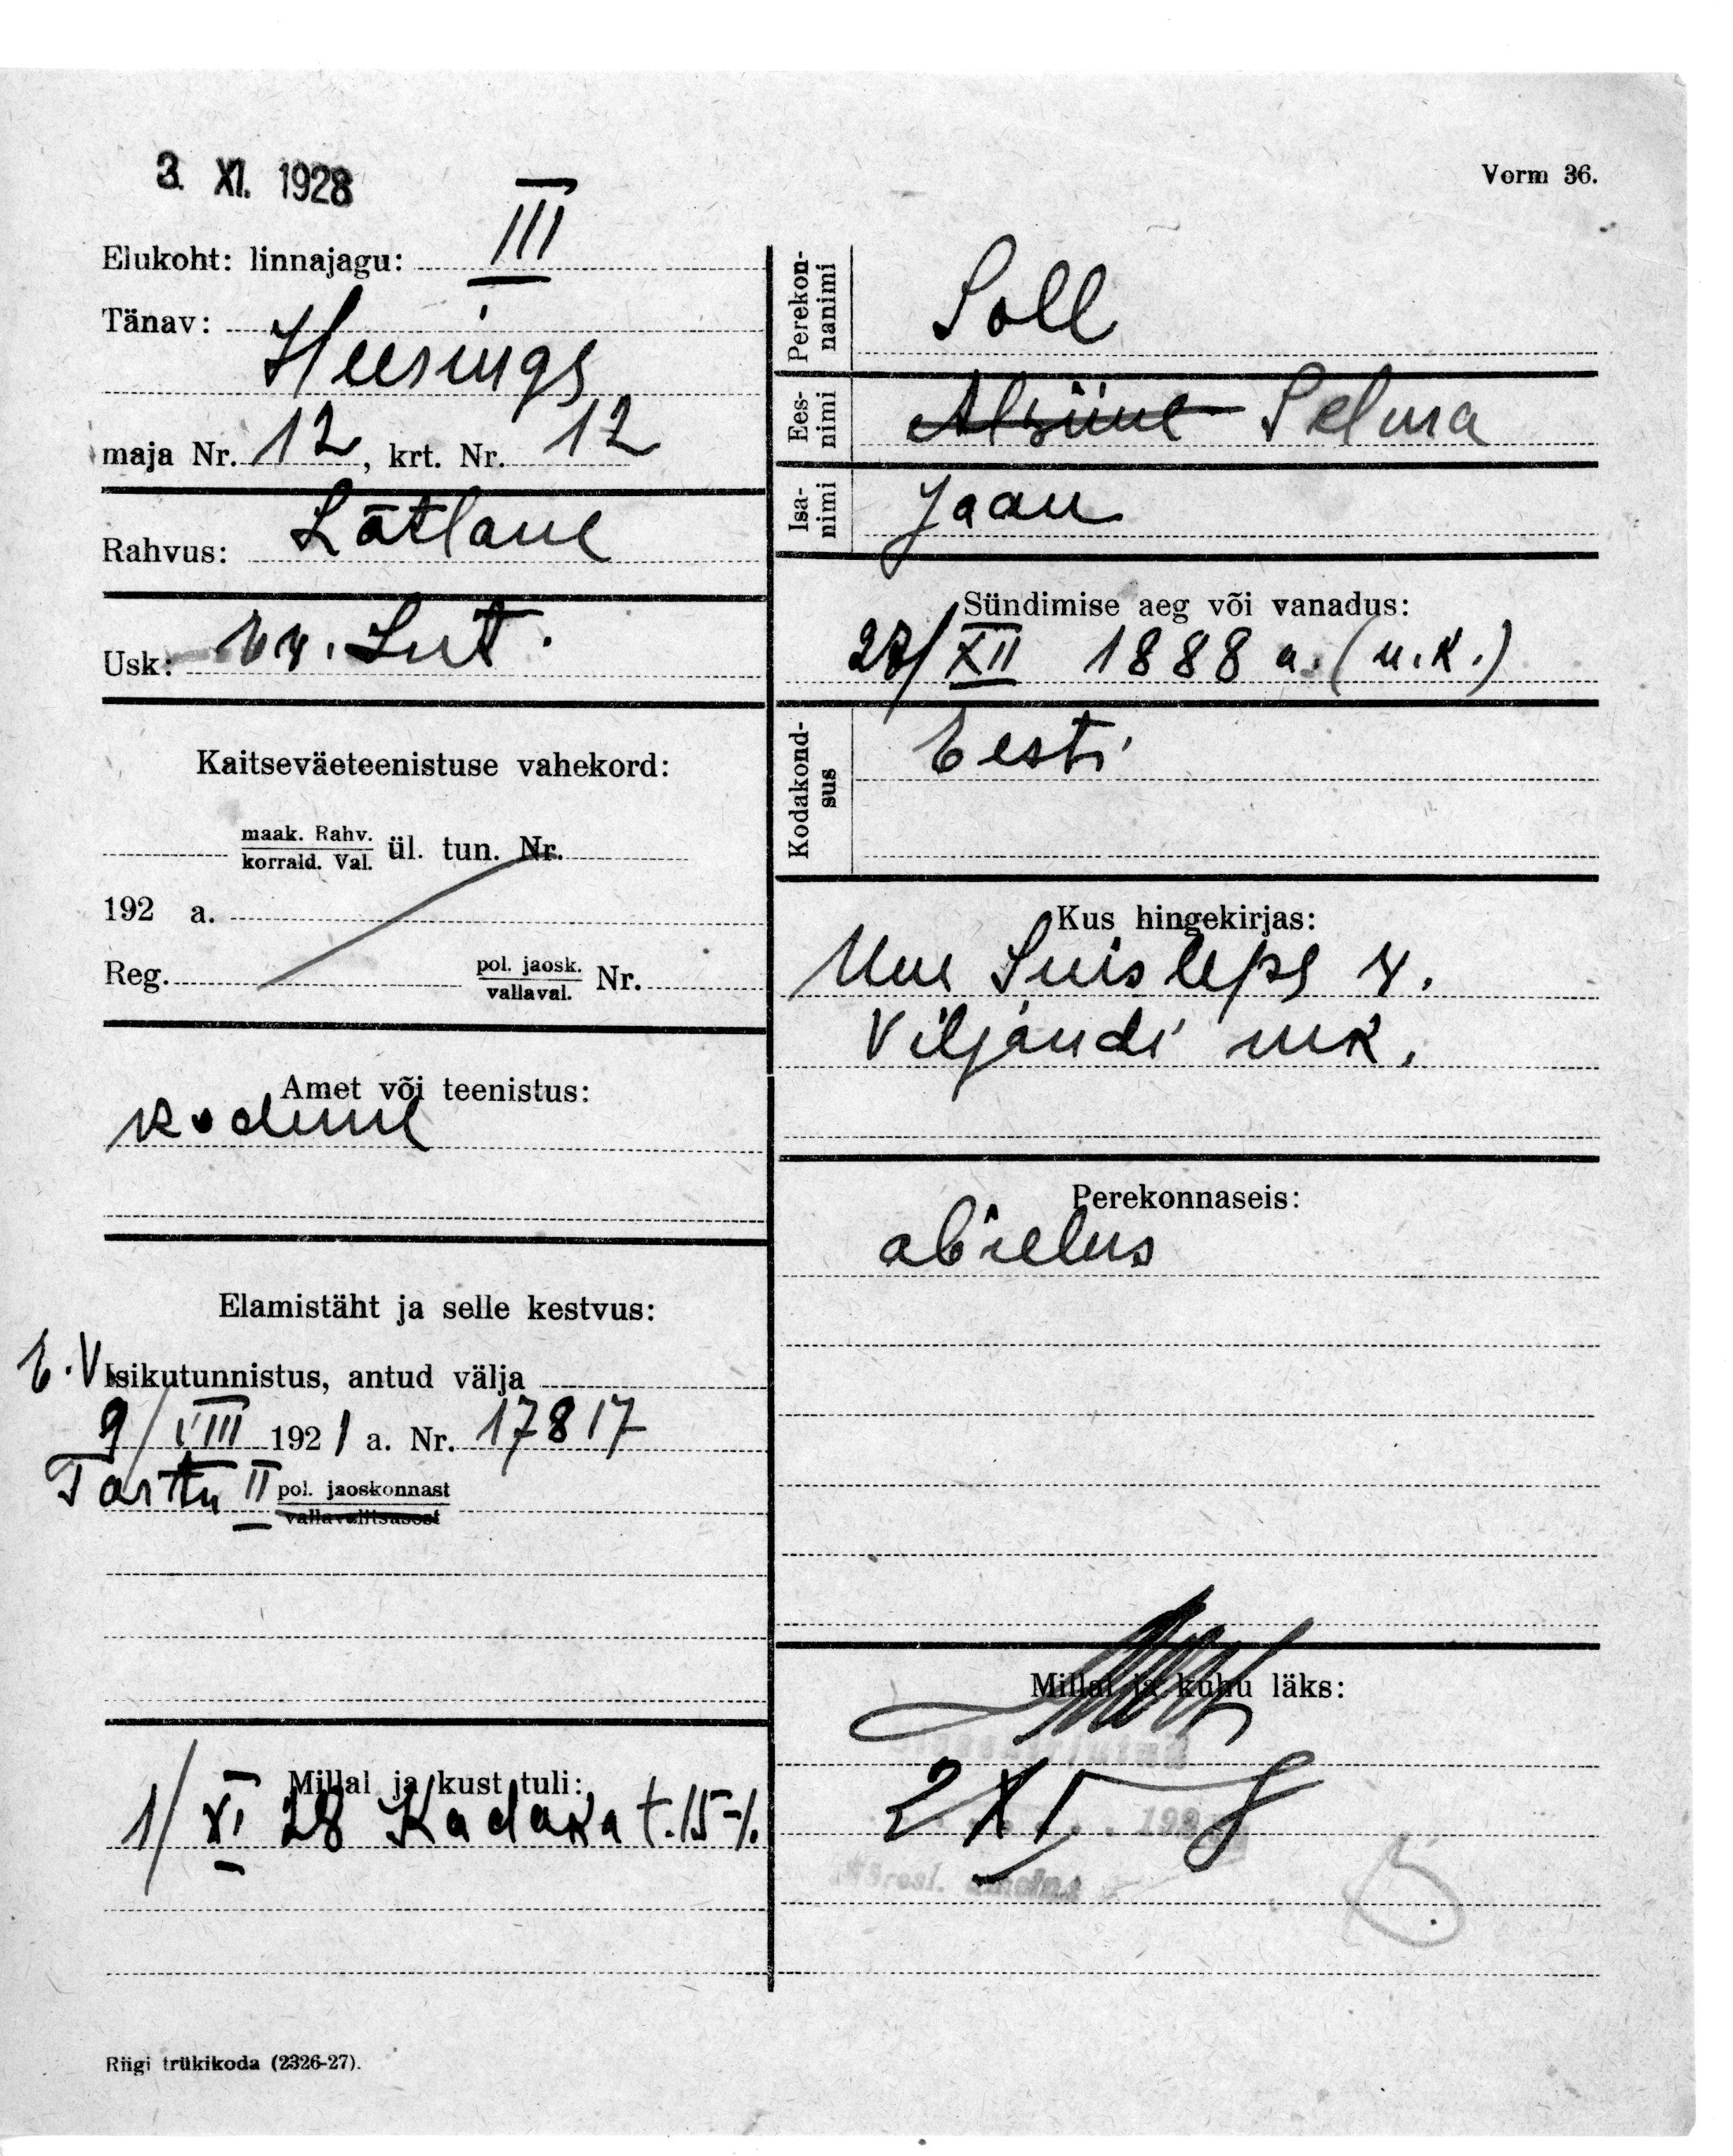 3. XI. 1928
Vorm 36.
Elukoht: linnajagu: III
Tänav:
Heeringa
maja Nr. 12, krt. Nr. 12
Rahvus: Lätlane
Usk: Ev. Lut.
Kaitseväeteenistuse vahekord:
maak. Rahv.
korrald. Val. ül. tun. Nr.
192 a.
Reg. pol. jaosk.
vallaval. Nr.
Amet või teenistus:
kodune
Elamistäht ja selle kestvus:
E.V. Isikutunnistus, antud välja
9/VIII 1921 a. Nr. 17817
Tartu II pol. jaoskonnast
vallavalitsusest
Millal ja kust tuli:
1/XI 28 Kadaka t. 15-1.
Riigi trükikoda (2326-27).
Perekon-
nanimi
Soll
Ees-
nimi
Selma
Isa-
nimi
Jaan
Sündimise aeg või vanadus:
/XII 1888 a. (u.k.)
Kodakond-
sus
Eesti
Kus hingekirjas:
Uue Suislepa v.
Viljandi mk.
Perekonnaseis:
abielus
Millal ja kuhu läks:
2 XI